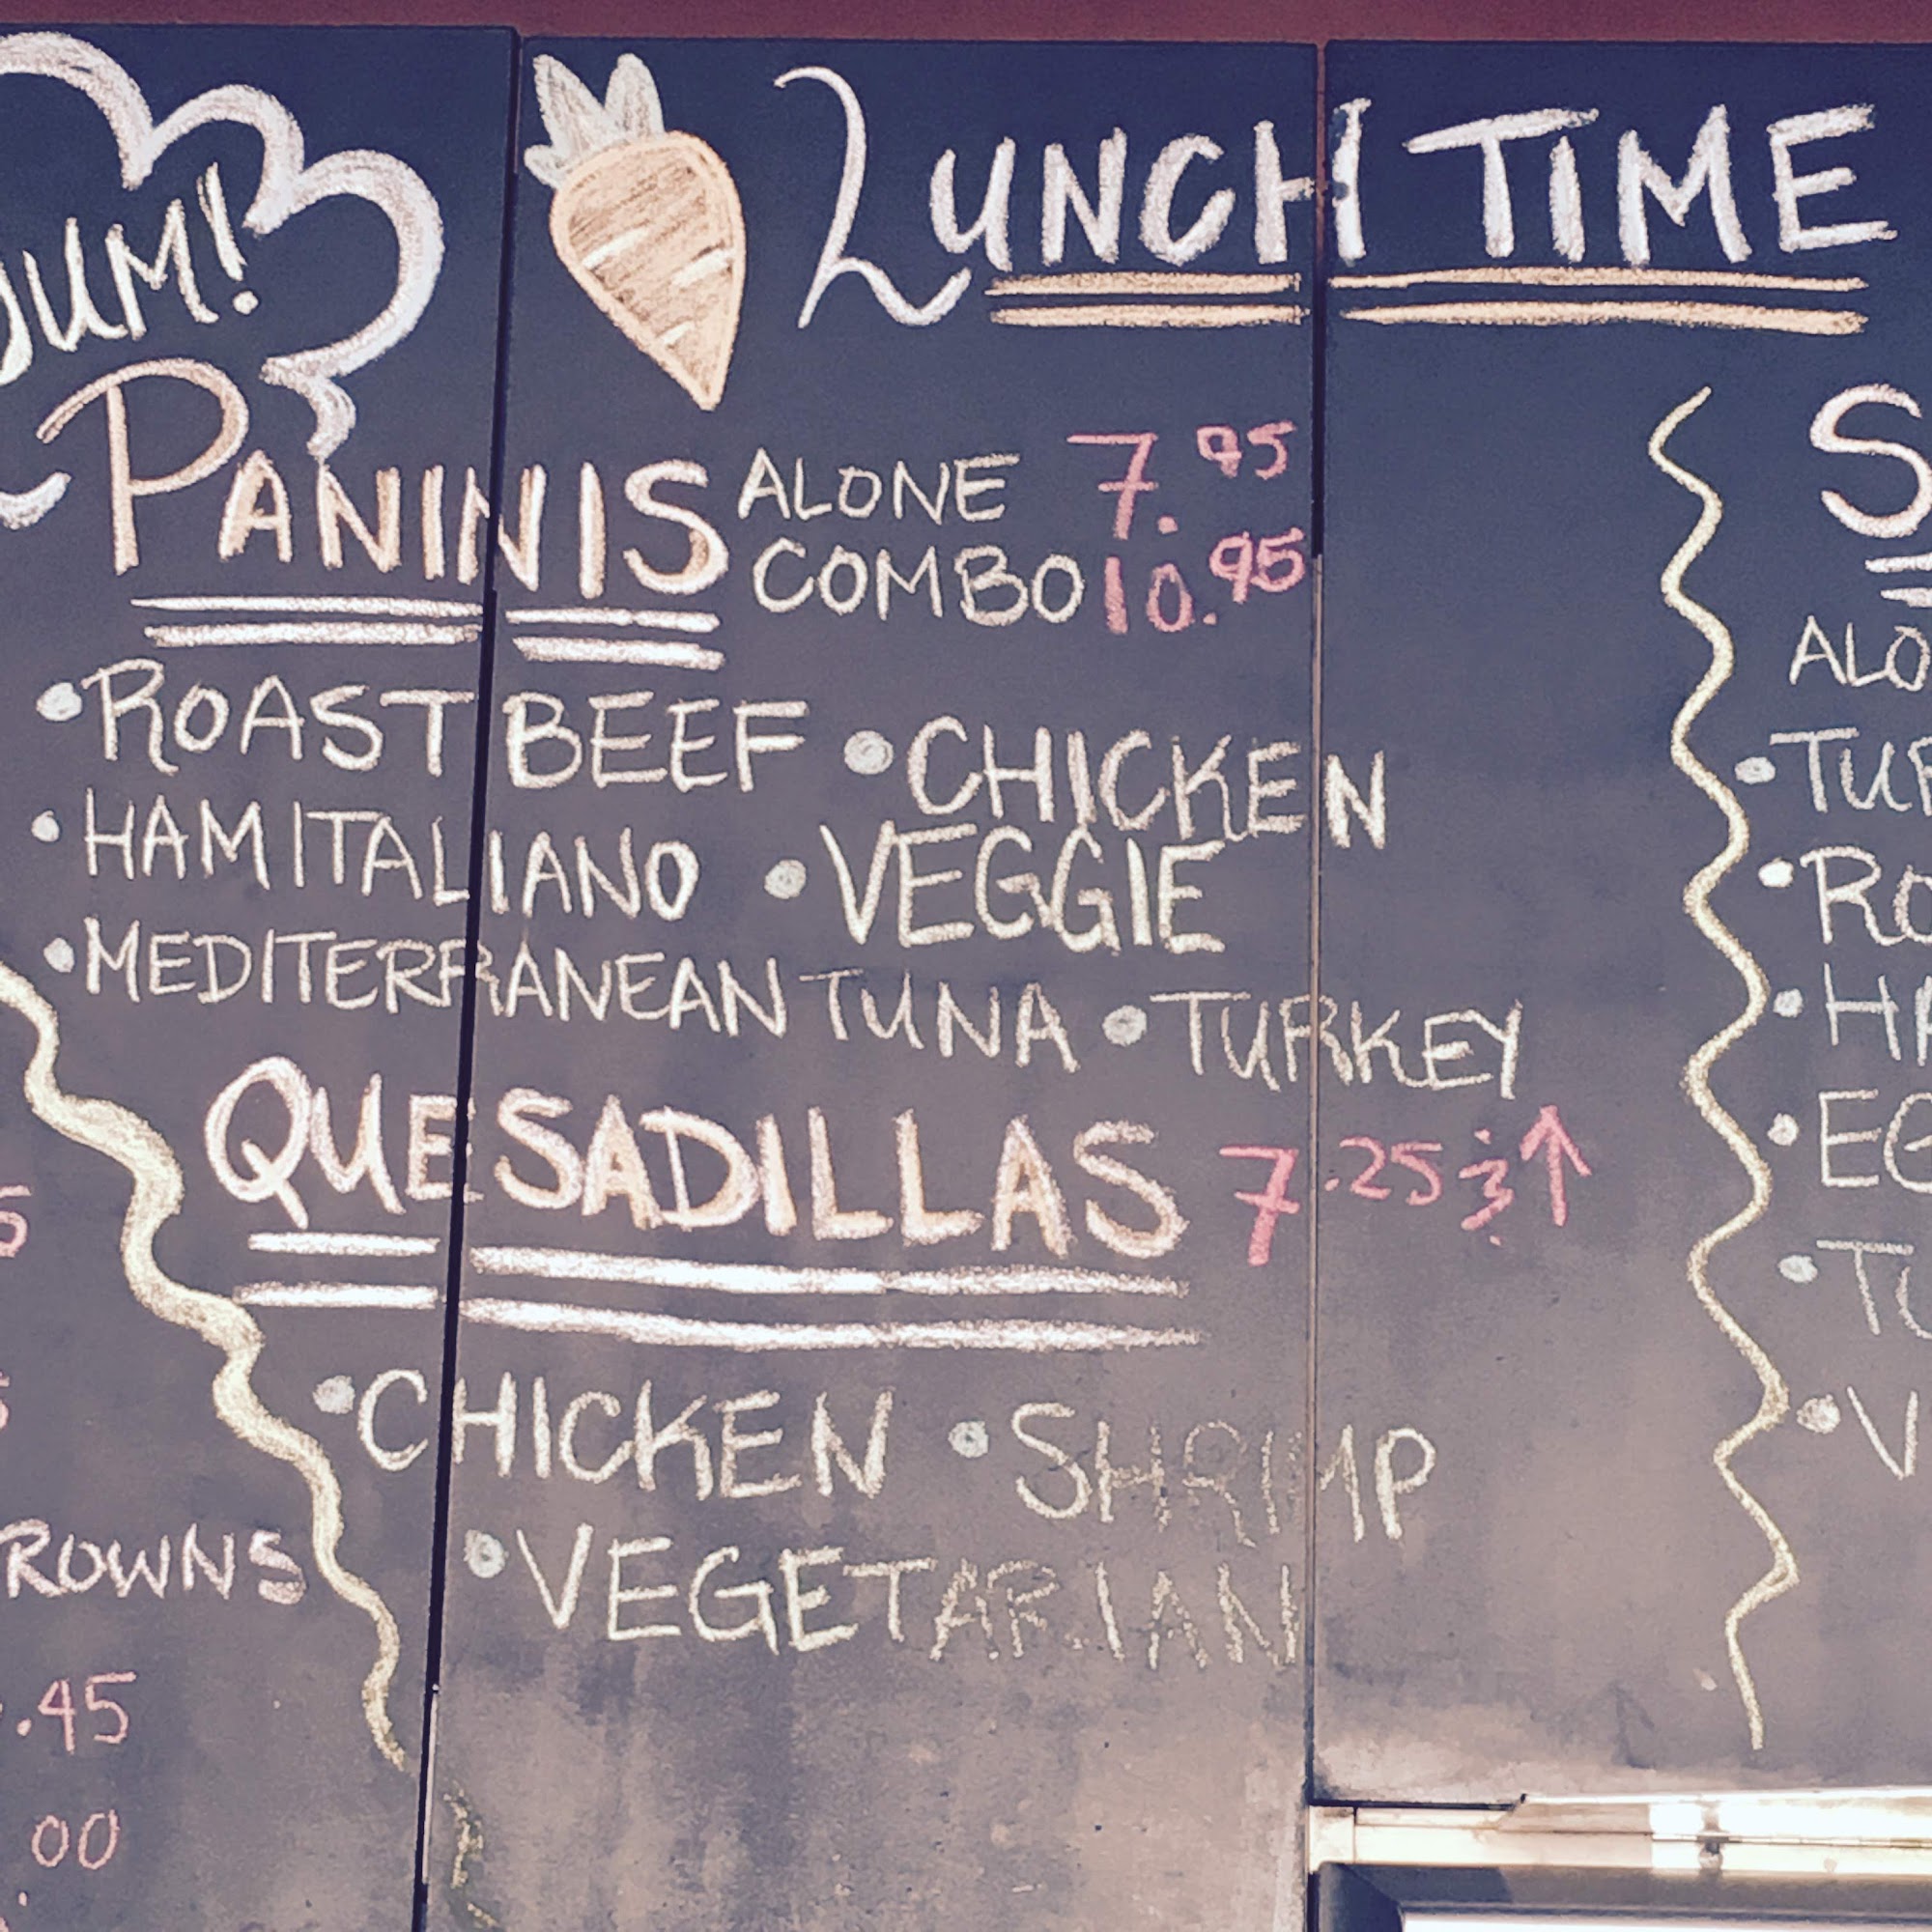 YUM!
LUNCH TIME
PANINIS ALONE 7.95
COMBO 10.95
• ROAST BEEF • CHICKEN
• HAM ITALIANO • VEGGIE
• MEDITERRANEAN TUNA • TURKEY
QUESADILLAS 7.25 & ↑
• CHICKEN • SHRIMP
• VEGETARIAN
.45
00